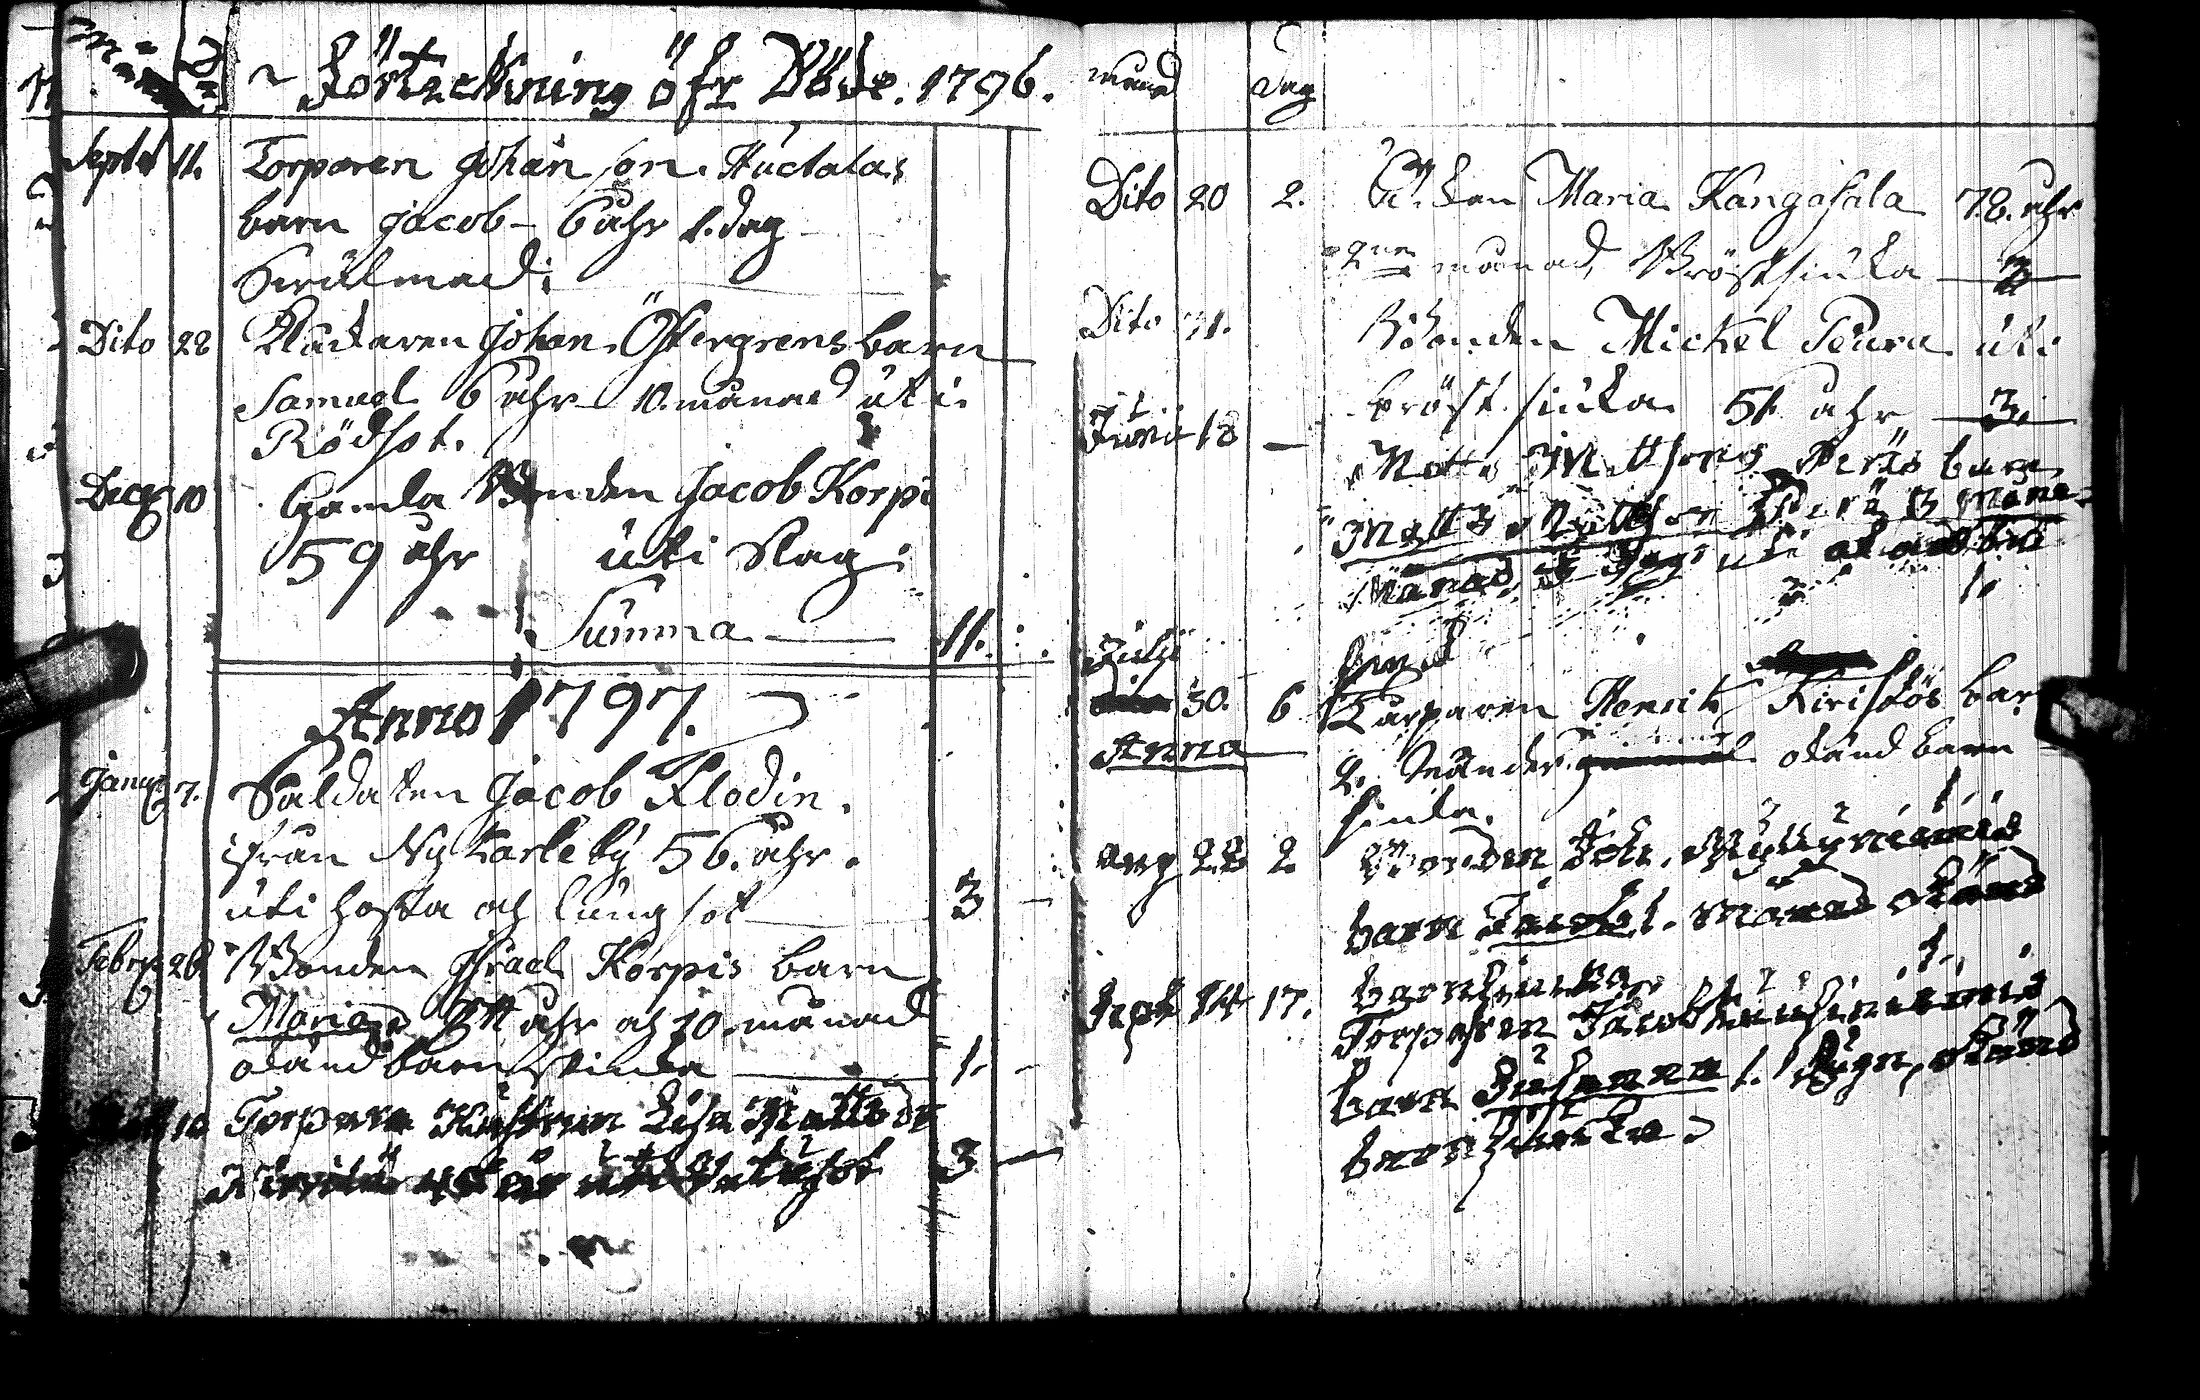 Månad Dag Förteckning öfr Döde. 1796.
Septr 11. Torparen Johan son. Huctalas
barn Jacob - 6 ahr 1. dag
Dito 22 Johan Östergrens barn
Samuel 6 ahr 10. månad uti
Rödsot.
Decr 10 Gamla Bonden Jacob Korpi
59 ahr uti Stag
Summa 11.
Anno 1797.
Janu 7. Saldaten Jacob Flodin.
ifrån Ny Karleby 56. ahr.
uti hosta och lungsot 3
Febr 26 Bonden Israel Korpis barn
Maria ahr och 10 månad
okänd barn siuka 1.
10 Torpare Hustrun Lisa Mattsdr
3
månad dag
Dito 20 2. Enkan Maria Kangasala 78. ahr
2ne månad, Bröstsiuka
Dito 31. Bonden Michel Peura uti
bröst siuka 51 ahr 3.
Junii 18 Matts Mattsons barn
Matts Mattson 3
Månad, uti okänd
1.
Julii siuk
30. 6 Torparen Henrik Kiriskös bar
Anna 2. Stunder okänd barn
siuka. 1.
Aug 22 2. Bonden Joh. Myllyniemis
barn Jacob 1. Månad Okänd
barnsiuka 1.
Sept 14 17. Torparen Jacob
barn Susanna 1. Dygn, okänd
barnsiuka